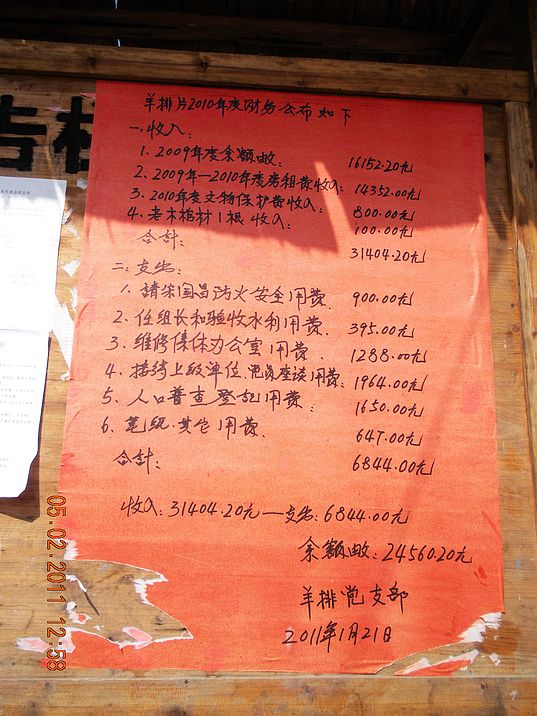 羊排片2010年度财务公布如下
一.收入:
1.2009年度余额款: 16152.20元
2.2009年—2010年度房租费收入: 14352.00元
3.2010年度文物保护费收入: 800.00元
4.老木棺材1根收入: 100.00元
合计: 31404.20元
二.支出:
1.請宋国昌防火安全用费 900.00元
2.任组长和验收水利用费. 395.00元
3.维修集体办公室用费. 1288.00元
4.接待上级单位.党员座谈用费: 1964.00元
5.人口普查登记用费: 1650.00元
6.笔纸.其它用费. 647.00元
合計: 6844.00元
收入:31404.20元—支出:6844.00元
余额款:24560.20元
羊排党支部
2011年1月21日
05.02.2011 12:58